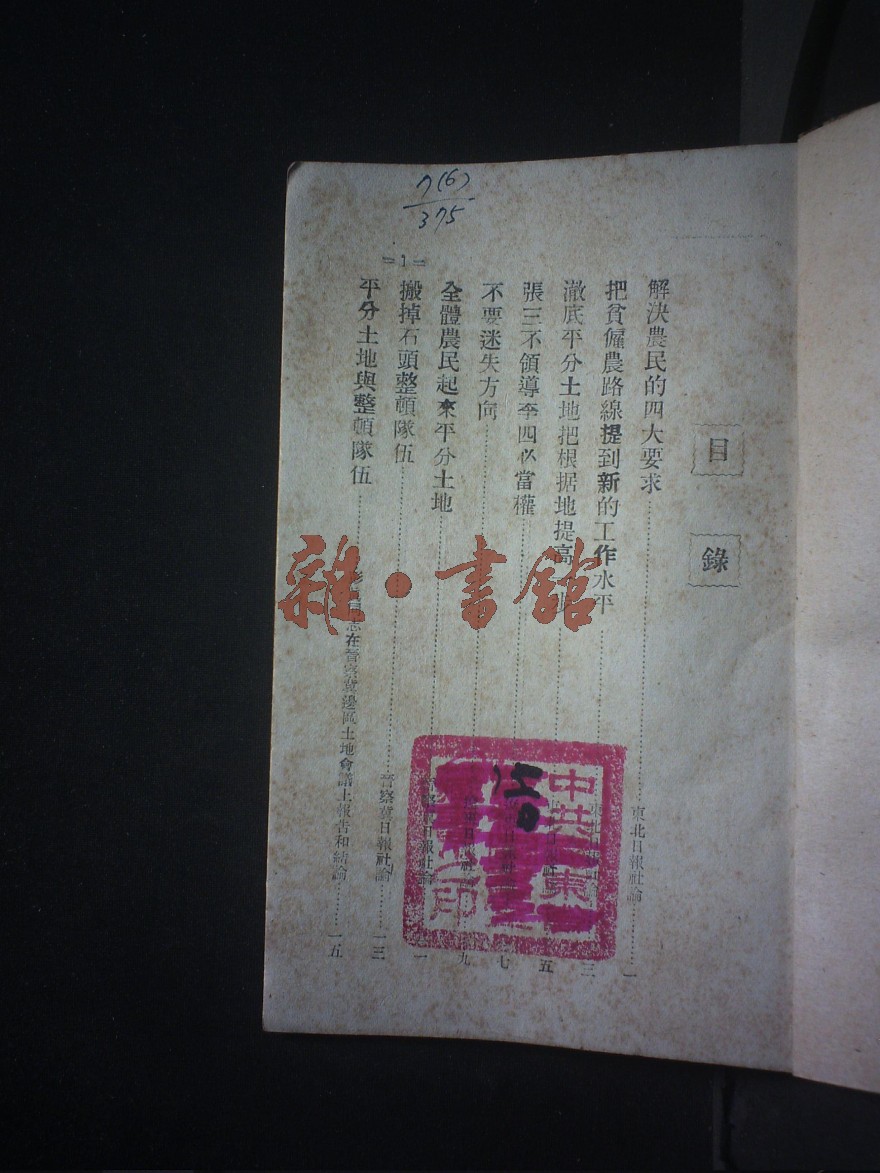 7(6)
375
目錄
解決農民的四大要求……東北日報社論……一
把貧僱農路線提到新的工作水平……三
澈底平分土地把根据地提高一步……五
張三不領導李四必當權……七
不要迷失方向……日報社論……九
全體農民起來平分土地……日報社論……一
搬掉石頭整頓隊伍……晉察冀日報社論……一三
平分土地與整頓隊伍……在晉察冀邊區土地會議上報告和結論……一五
=1=
雜·書館
中共
東
印